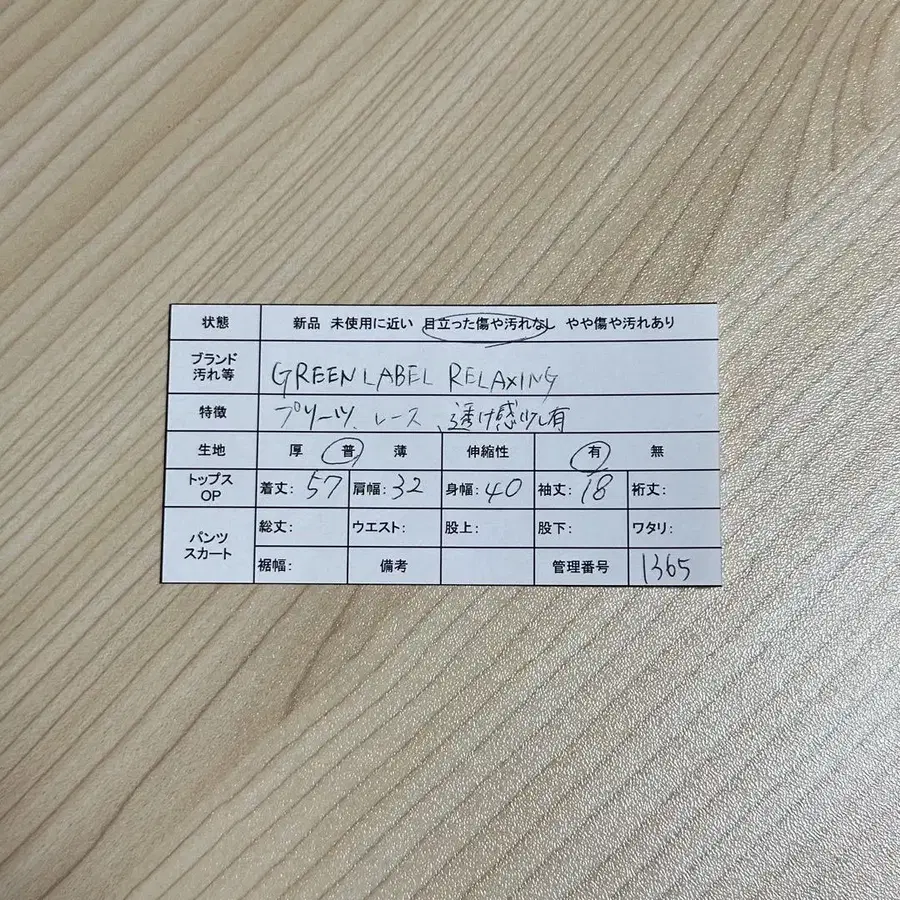 状態 新品 未使用に近い 目立った傷や汚れなし やや傷や汚れあり
ブランド
汚れ等 GREEN LABEL RELAXING
特徴 プリーツ、レース、透け感少し有
生地 厚 普 薄 伸縮性 有 無
トップス
OP 着丈: 57 肩幅: 32 身幅: 40 袖丈: 18 裄丈:
パンツ
スカート 総丈: ウエスト: 股上: 股下: ワタリ:
裾幅: 備考 管理番号 1365